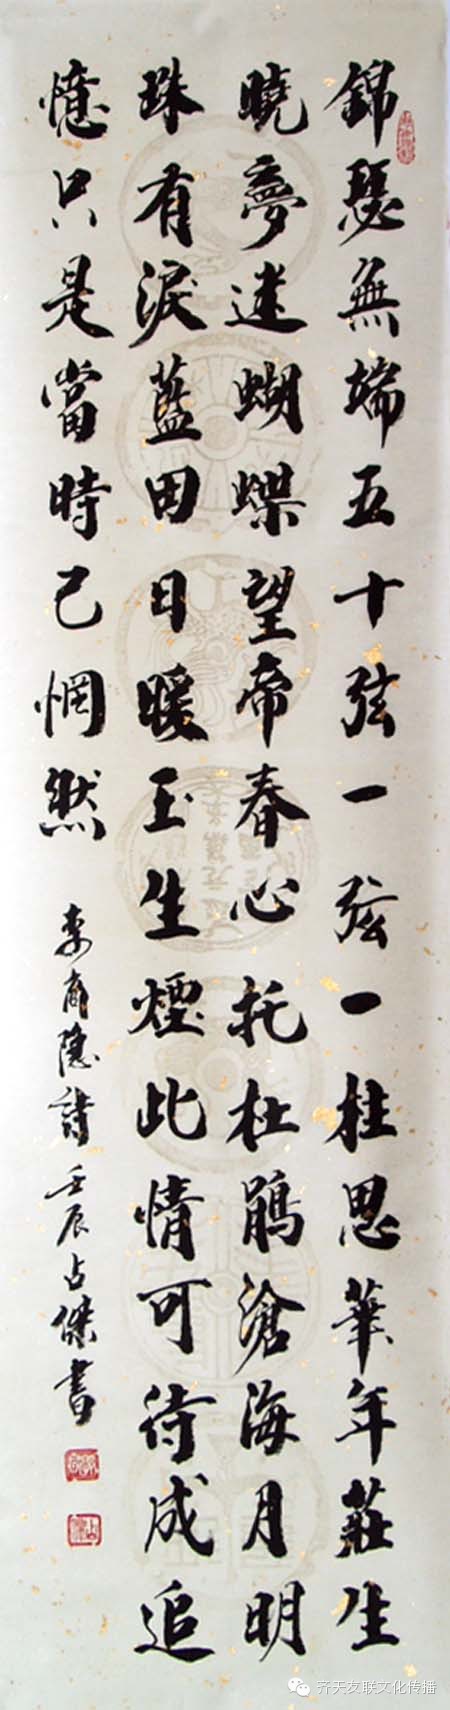 錦瑟無端五十弦一弦一柱思華年莊生
曉夢迷蝴蝶望帝春心托杜鵑滄海月明
珠有淚藍田日暖玉生煙此情可待成追
憶只是當時已惘然
李商隱詩 壬辰占傑書
齐天友联文化传播